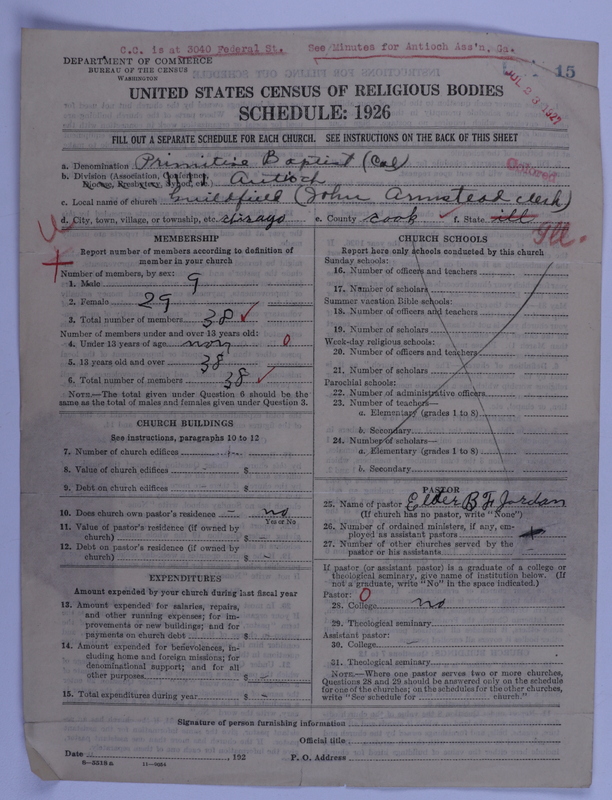 C.C. is at 3040 Federal St. See Minutes for Antioch Ass'n, Ga.
DEPARTMENT OF COMMERCE
BUREAU OF THE CENSUS
WASHINGTON
JUL 23 1927
15
UNITED STATES CENSUS OF RELIGIOUS BODIES
SCHEDULE: 1926
FILL OUT A SEPARATE SCHEDULE FOR EACH CHURCH. SEE INSTRUCTIONS ON THE BACK OF THIS SHEET
a. Denomination Primitive Baptist (Col)
Colored
b. Division (Association, Conference, Diocese, Presbytery, Synod, etc.) Antioch
c. Local name of church Guildfield (John Armstead clerk)
d. City, town, village, or township, etc. chicago e. County cook f. State ill
Ill.
MEMBERSHIP
Report number of members according to definition of member in your church
Number of members, by sex:
1. Male 9
2. Female 29
3. Total number of members 38
Number of members under and over 13 years old:
4. Under 13 years of age non 0
5. 13 years old and over 38
6. Total number of members 38
NOTE.—The total given under Question 6 should be the same as the total of males and females given under Question 3.
CHURCH BUILDINGS
See instructions, paragraphs 10 to 12
7. Number of church edifices -
8. Value of church edifices - $
9. Debt on church edifices - $
10. Does church own pastor's residence - no
Yes or No
11. Value of pastor's residence (if owned by church) $ -
12. Debt on pastor's residence (if owned by church) $ -
EXPENDITURES
Amount expended by your church during last fiscal year
13. Amount expended for salaries, repairs, and other running expenses; for improvements or new buildings; and for payments on church debt $
14. Amount expended for benevolences, including home and foreign missions; for denominational support; and for all other purposes $ -
15. Total expenditures during year $ -
CHURCH SCHOOLS
Report here only schools conducted by this church
Sunday schools:
16. Number of officers and teachers
17. Number of scholars
Summer vacation Bible schools:
18. Number of officers and teachers
19. Number of scholars
Week-day religious schools:
20. Number of officers and teachers
21. Number of scholars
Parochial schools:
22. Number of administrative officers
23. Number of teachers—
a. Elementary (grades 1 to 8)
b. Secondary
24. Number of scholars—
a. Elementary (grades 1 to 8)
b. Secondary
PASTOR
25. Name of pastor Elder B F Jordan
(If church has no pastor, write "None")
26. Number of ordained ministers, if any, employed as assistant pastors
27. Number of other churches served by the pastor or his assistants
If pastor (or assistant pastor) is a graduate of a college or theological seminary, give name of institution below. (If not a graduate, write "No" in the space indicated.)
Pastor: 0
28. College no
29. Theological seminary
Assistant pastor:
30. College -
31. Theological seminary
NOTE.—Where one pastor serves two or more churches, Questions 28 and 29 should be answered only on the schedule for one of the churches; on the schedules for the other churches, write "See schedule for church."
Signature of person furnishing information
Official title
Date , 192 P. O. Address
8-5318a 11-9084